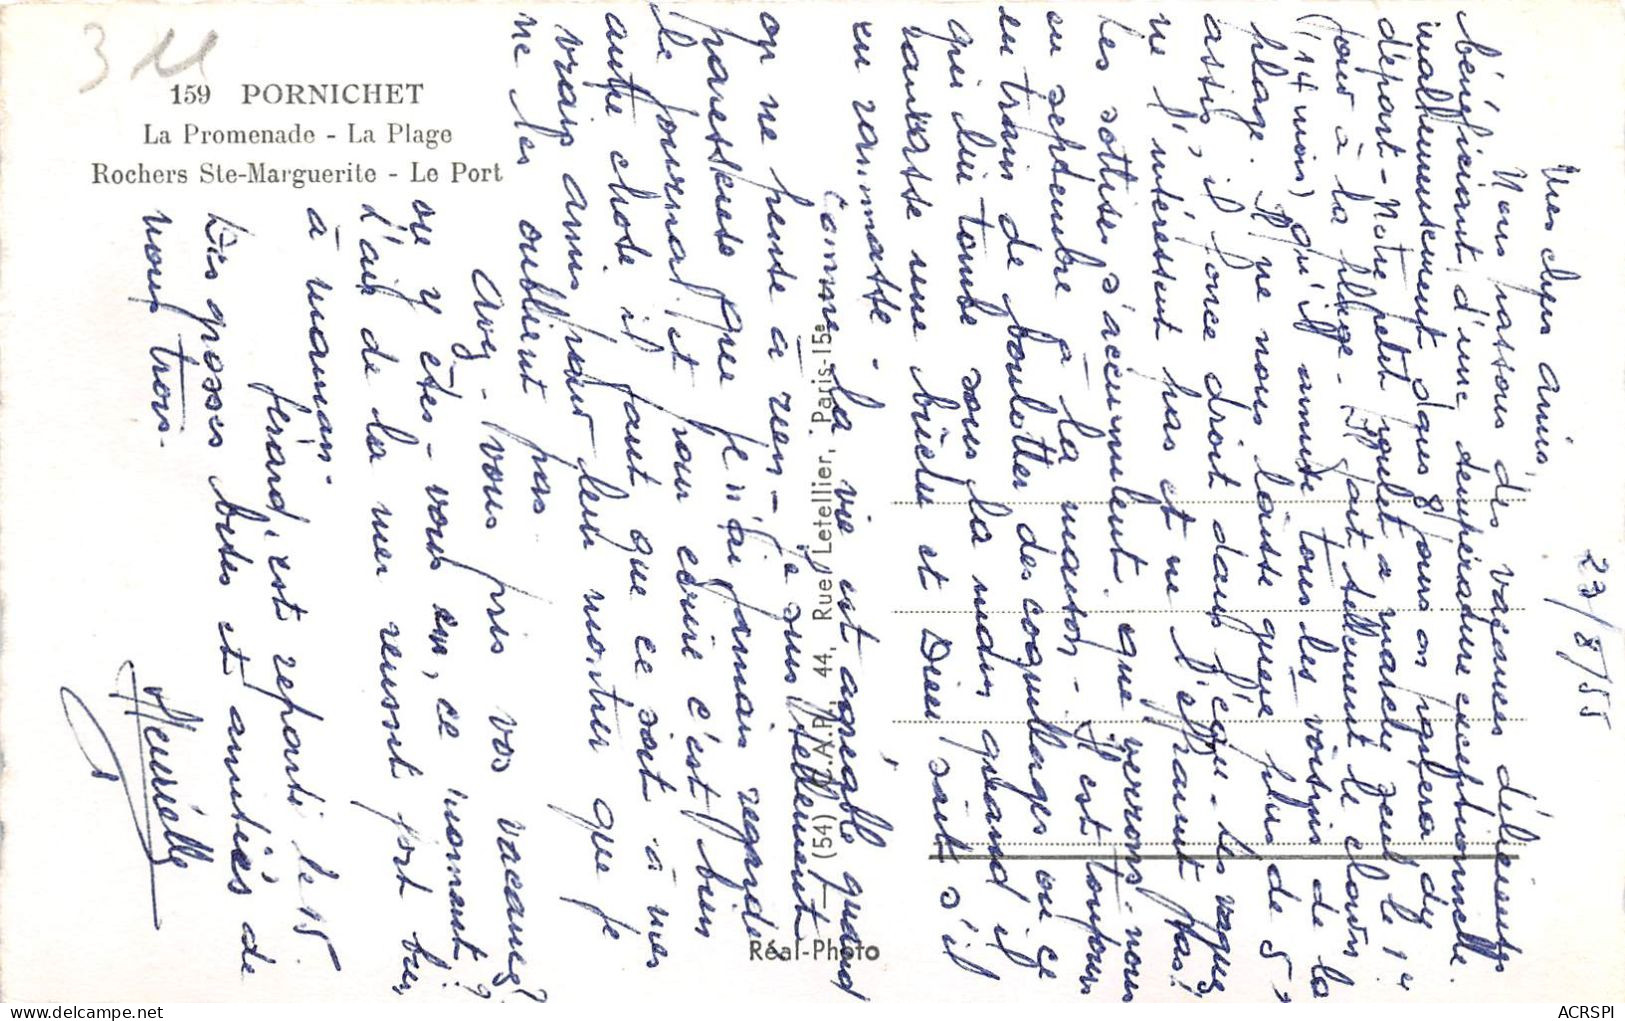 3 11
159 PORNICHET
La Promenade - La Plage
Rochers Ste-Marguerite - Le Port
23/8/55
Mes chers amis,
Nous passons des vacances délicieuses
bénéficiant d'une température exceptionnelle.
malheureusement dans 8 jours on parlera de
départ - Notre petit poulet a marché seul le 1er
jour à la plage - Il fait tellement le clown
(14 mois) qu'il amuse tous les voisins de la
plage. Il ne nous laisse guère plus de 5'
assis, il fonce droit dans l'eau - les vagues
ne l'intéressent pas et ne l'effraient pas!
Les sottises s'accumulent. que verrons-nous
en septembre à la maison - Il est toujours
en train de boulotter des coquillages ou ce
qui lui tombe sous la main quand il
ramasse une bielu et Dieu sait s'il
en rammasse -
Comme la vie est agréable quand
on ne pense à rien - Je suis tellement
paresseuse que je n'ai jamais regardé
le journal et pour écrire c'est bien
autre chose il faut que ce soit à mes
vrais amis pour leur montrer que je
ne les oublient pas
Avez-vous pris vos vacances?
ou y êtes-vous en, ce moment?
l'air de la mer réussit fort bien
à maman -
Gérard, est reparti le 15.
Des grosses bises et amitiés de
nous trois -
(54) C.A.P. 44, Rue Letellier, Paris-15e
Réal-Photo
ACRSPI